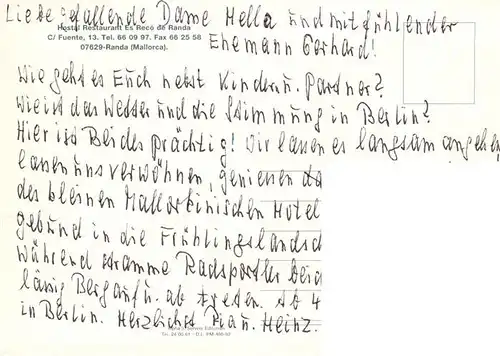 Liebe gefallende Dame Hella und mitfühlender
Hostal Restaurant Es Recó de Randa
Ehemann Gerhard!
C/ Fuente, 13. Tel. 66 09 97. Fax 66 25 58
07629-Randa (Mallorca).
Wie geht es Euch nebst Kinder u. Partner?
Wie ist das Wetter und die Stimmung in Berlin?
Hier ist Beides prächtig! Wir lassen es langsam angehen
lassen uns verwöhnen, genießen
des kleinen Mallorkinischen Hotel
gebund in die Frühlingslandsch
während stramme Radsportler
Berg auf u. ab Ab 4
in Berlin. Herzlichst Pia u. Heinz.